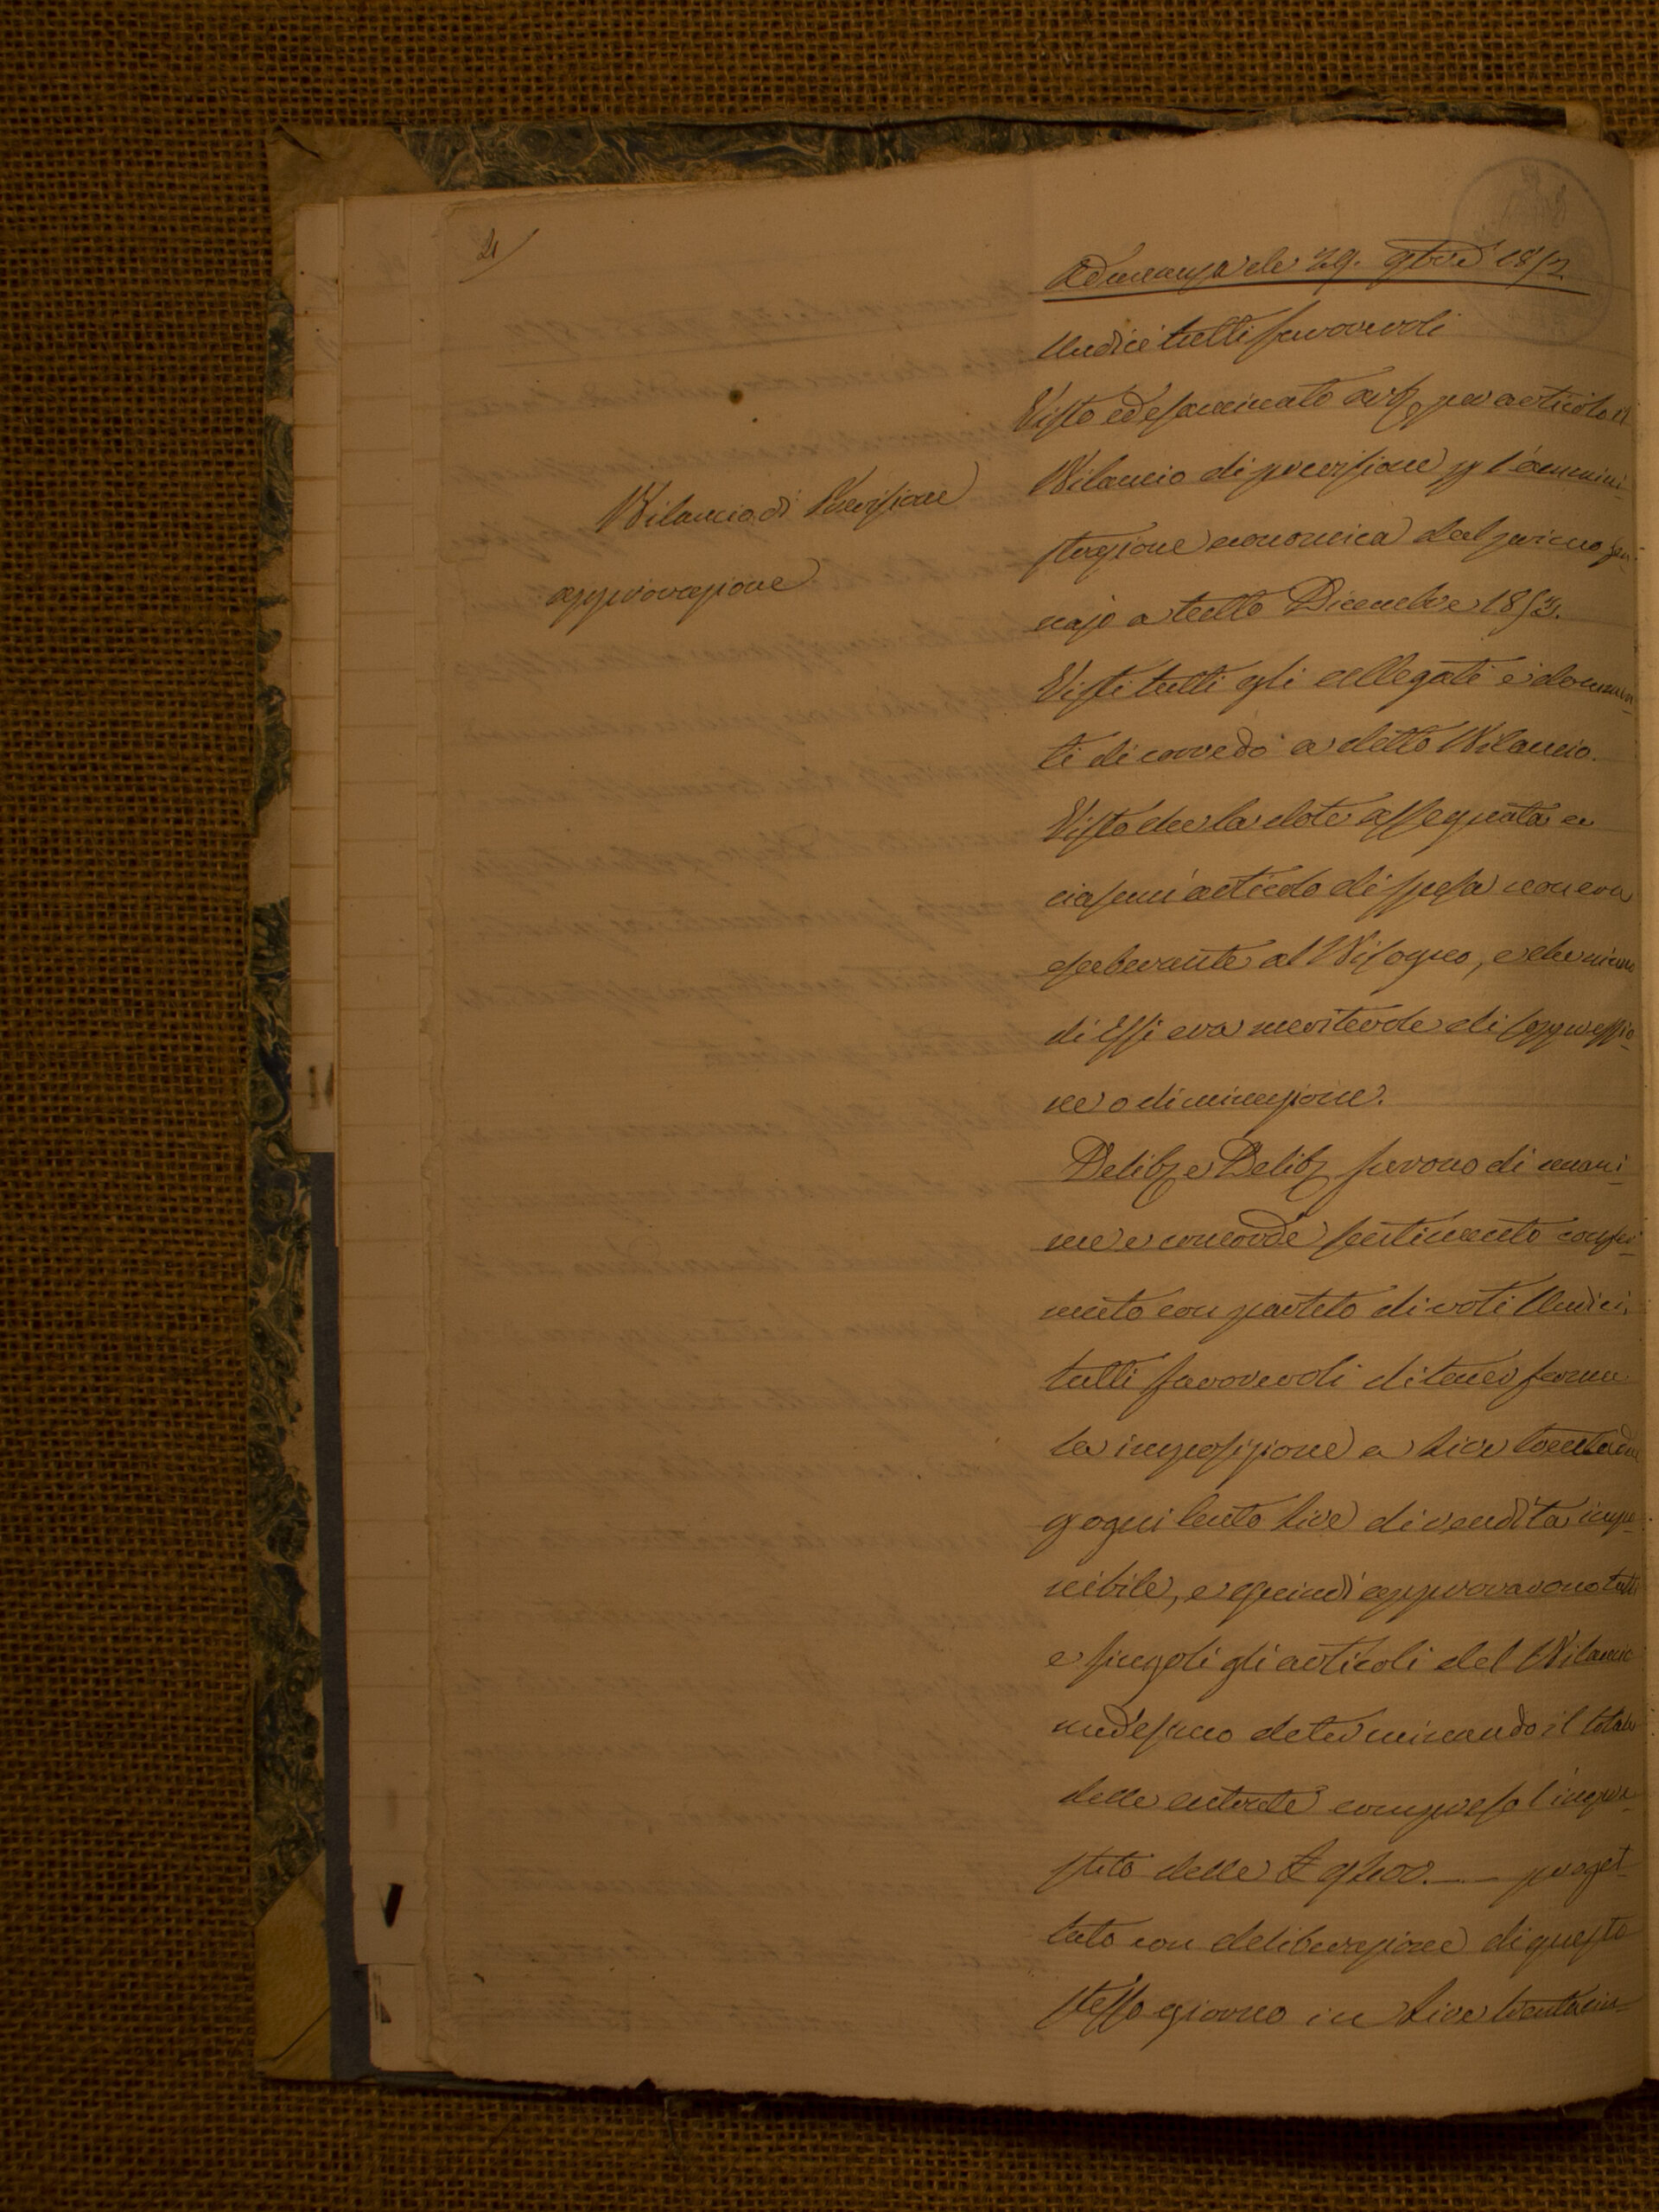 21
Adunanza de 29. 9bre 1852
Undici tutti favorevoli
Bilancio di Previsione
approvazione
Visto ed esaminato artº per articolo il
Bilancio di previsione pr l'ammini-
strazione economica del primo Gen-
najo a tutto Dicembre 1853.
Visti tutti gli allegati e documen-
ti di corredo a detto Bilancio.
Visto che la dote assegnata a
ciascun articolo di spesa non era
esuberante al Bisogno, e che niuno
di Essi era meritevole di soppressio-
ne o diminuzione.
Delibe Delib furono di unani-
me e concorde sentimento confer-
mato con partito di voti Undici
tutti favorevoli di tener ferma
la imposizione a Lire
p ogni Cento Lire di rendita impo-
nibile, e quindi approvarono tutti
e singoli gli articoli del Bilancio
medesimo determinando il totale
delle entrate compreso l'impre-
stito delle £ proget-
tato con deliberazione di questo
stesso giorno in Lire